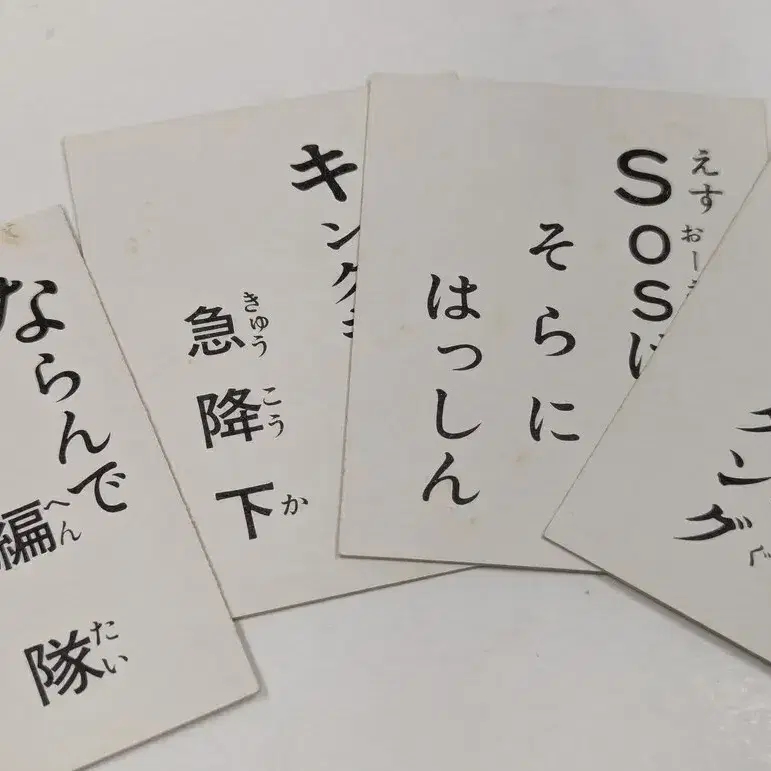 ならんで
編隊
へんたい
キング
急降下
きゅうこうか
SOSに
えすおー
そらに
はっしん
ング